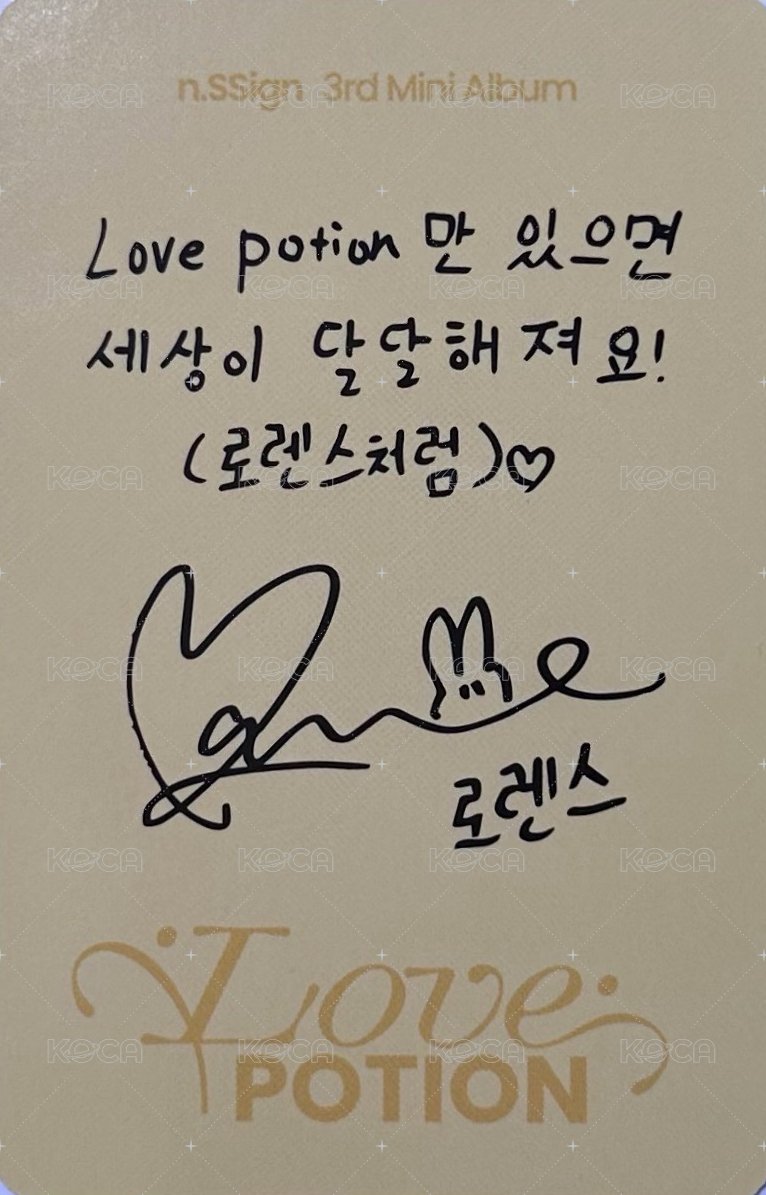 n.SSign 3rd Mini Album
Love potion만 있으면
세상이 달달해져요!
(로렌스처럼)♡
로렌스
Love
POTION
KOCA